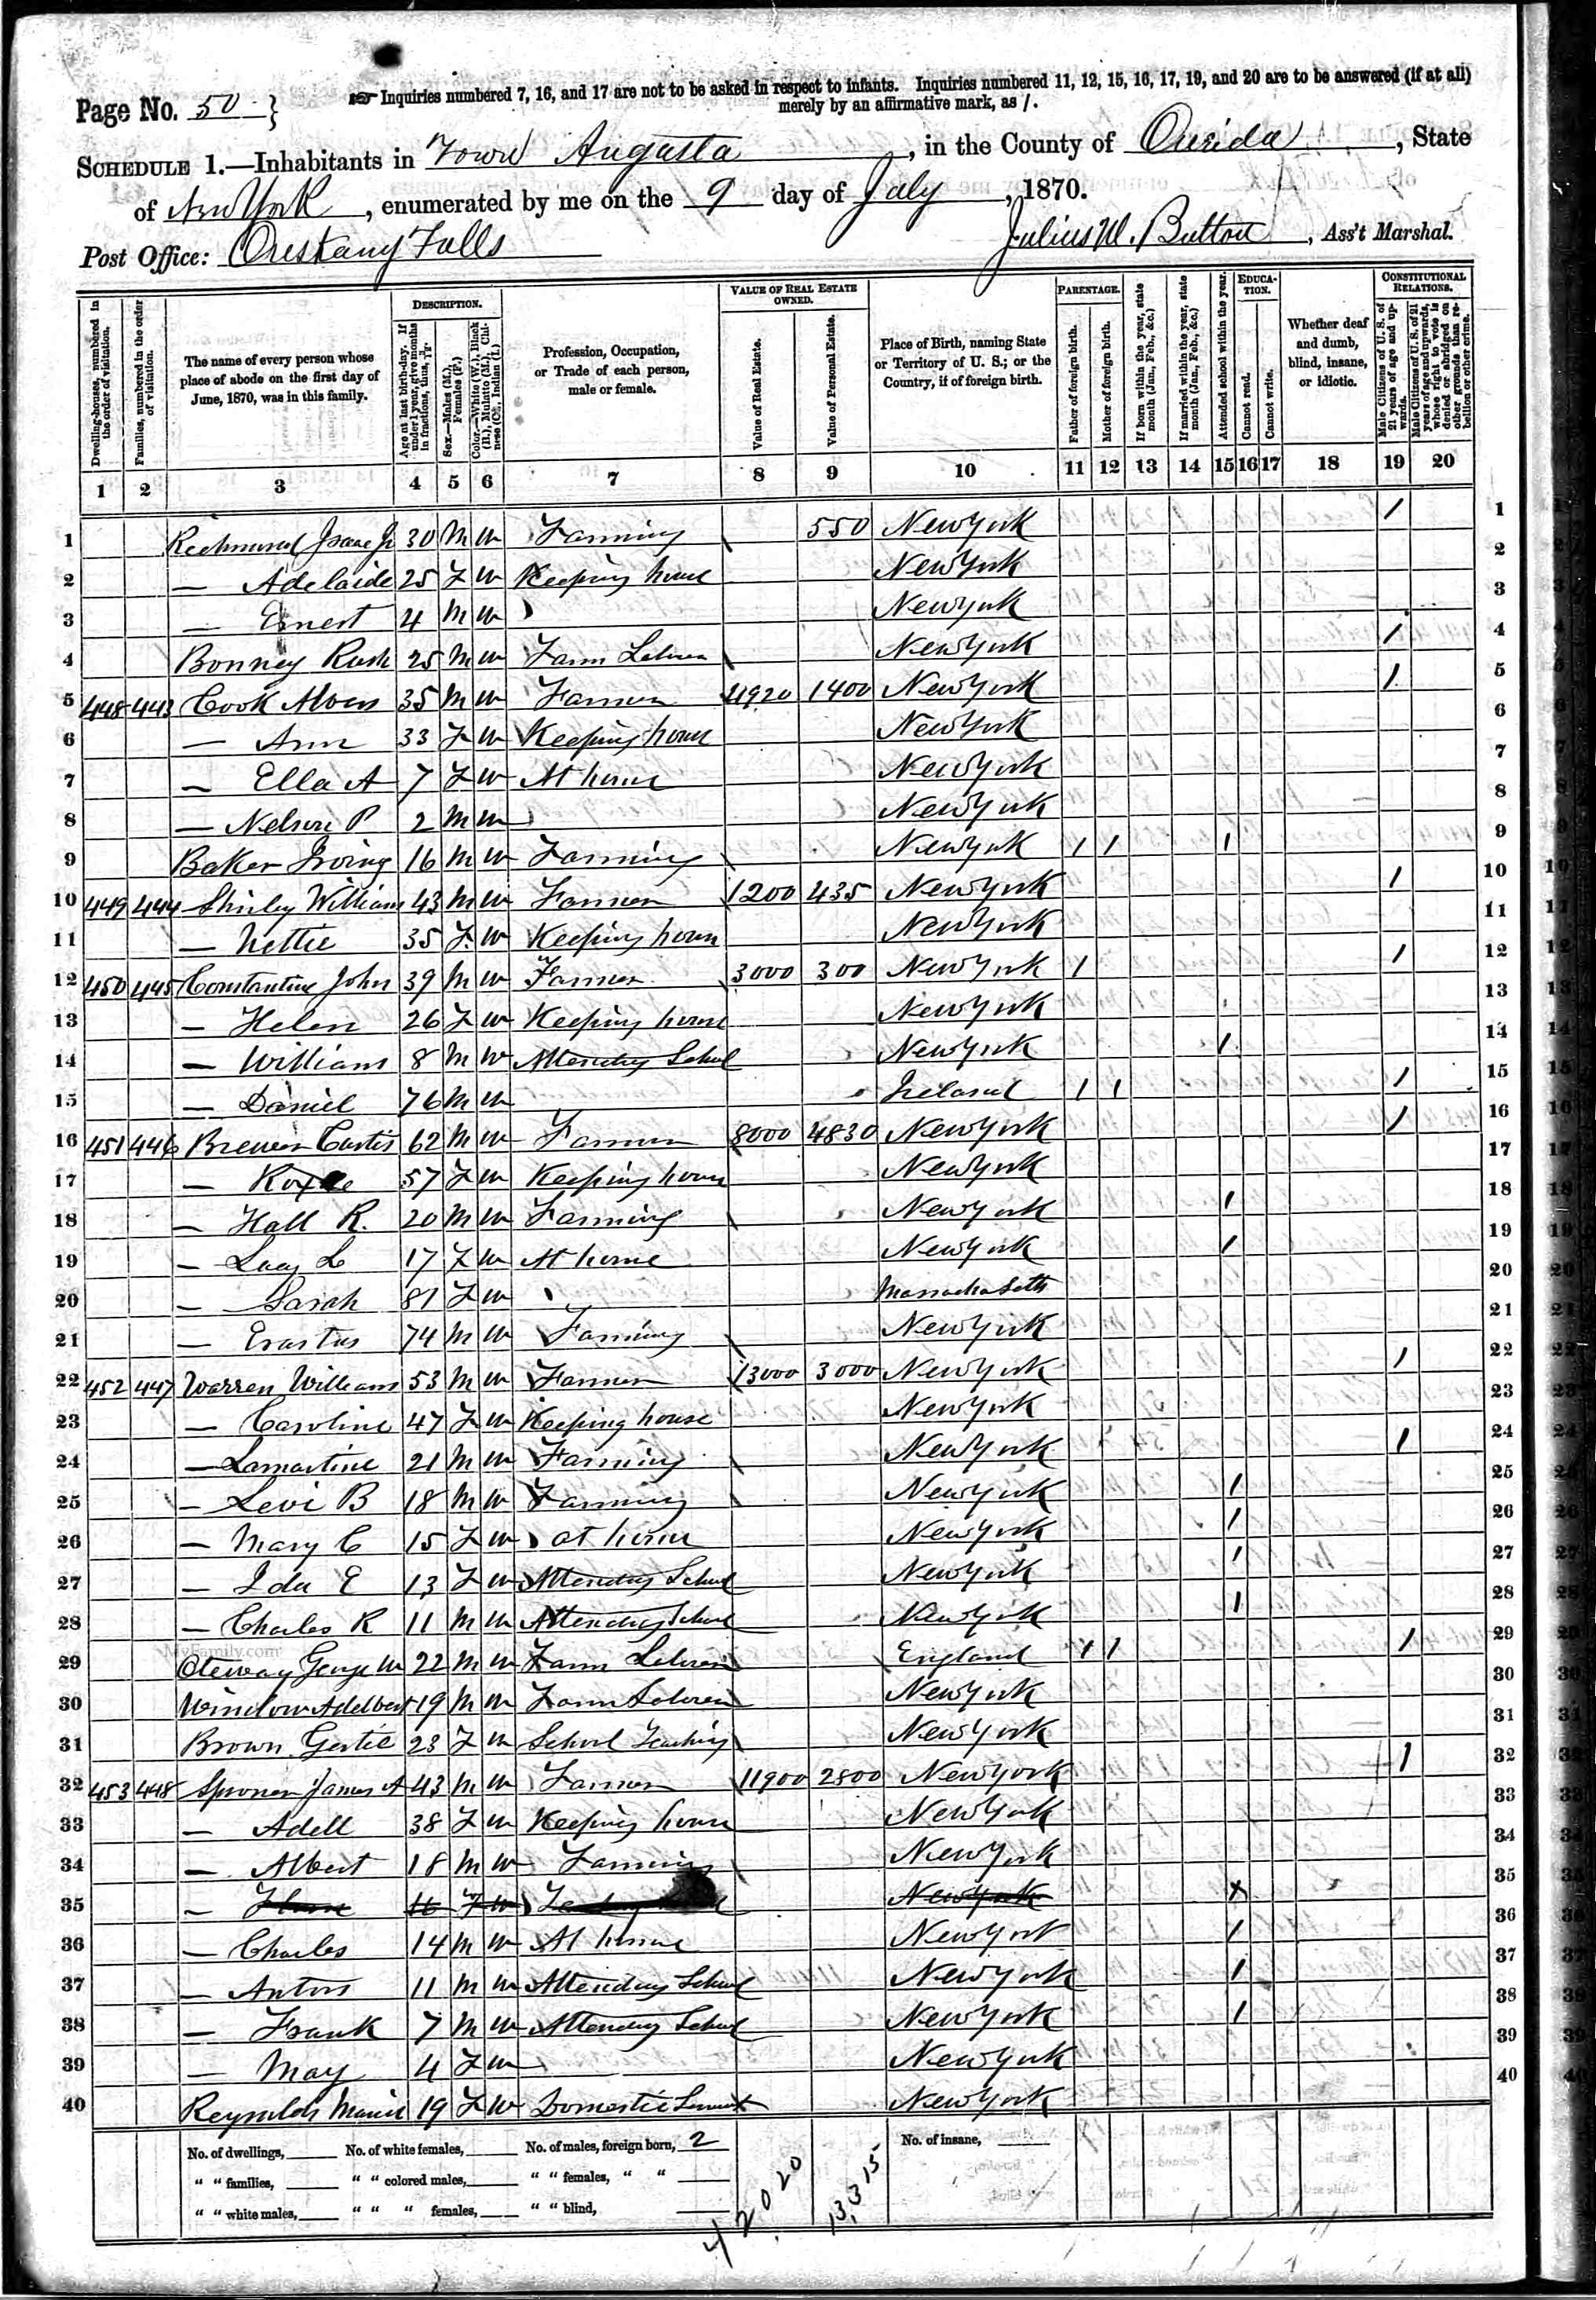 Page No. 50
Inquiries numbered 7, 16, and 17 are not to be asked in respect to infants. Inquiries numbered 11, 12, 15, 16, 17, 19, and 20 are to be answered (if at all)
merely by an affirmative mark, as /.
SCHEDULE 1.—Inhabitants in Town Augusta, in the County of Oneida, State
of New York, enumerated by me on the 9 day of July, 1870.
Post Office: Oriskany Falls
Julius W. Button, Ass't Marshal.
Dwelling-houses, numbered in the order of visitation.
Families, numbered in the order of visitation.
The name of every person whose place of abode on the first day of June, 1870, was in this family.
DESCRIPTION.
Age at last birth-day. If under 1 year, give months in fractions, thus, 3/12.
Sex.—Males (M.), Females (F.)
Color.—White (W.), Black (B.), Mulatto (M.), Chinese (C.), Indian (I.)
Profession, Occupation, or Trade of each person, male or female.
VALUE OF REAL ESTATE OWNED.
Value of Real Estate.
Value of Personal Estate.
Place of Birth, naming State or Territory of U. S.; or the Country, if of foreign birth.
PARENTAGE.
Father of foreign birth.
Mother of foreign birth.
If born within the year, state month (Jan., Feb., &c.)
If married within the year, state month (Jan., Feb., &c.)
Attended school within the year.
EDUCATION.
Cannot read.
Cannot write.
Whether deaf and dumb, blind, insane, or idiotic.
CONSTITUTIONAL RELATIONS.
Male Citizens of U. S. of 21 years of age and upwards.
Male Citizens of U. S. of 21 years of age and upwards, whose right to vote is denied or abridged on other grounds than rebellion or other crime.
1 2 3 4 5 6 7 8 9 10 11 12 13 14 15 16 17 18 19 20
1 Richmond Isaac Jr 30 M W Farming 550 New York / 1
2 — Adelaide 25 F W Keeping house New York 2
3 — Ernest 4 M W New York 3
4 Bonney Rush 25 M W Farm Laborer New York / 4
5 448 443 Cook 35 M W Farmer 1400 New York / 5
6 — Ann 33 F W Keeping house New York 6
7 — Ella A 7 F W At home New York 7
8 — Nelson P 2 M W New York 8
9 Baker Irving 16 M W Farming New York / / / 9
10 449 444 Shirley William 43 M W Farmer 1200 435 New York / 10
11 — Nettie 35 F W Keeping house New York 11
12 450 445 Constantine John 39 M W Farmer 3000 300 New York / / 12
13 — Helen 26 F W Keeping house New York 13
14 — William 8 M W Attending School New York / 14
15 — Daniel 76 M W Ireland / / / 15
16 451 446 Brewer Curtis 62 M W Farmer 8000 4830 New York / 16
17 — 57 F W Keeping house New York 17
18 — Hall R. 20 M W Farming New York / 18
19 — Lucy L 17 F W At home New York / 19
20 — Sarah 81 F W Massachusetts 20
21 — Erastus 74 M W Farming New York 21
22 452 447 Warren William 53 M W Farmer 13000 3000 New York / 22
23 — Caroline 47 F W Keeping house New York 23
24 — Lamartine 21 M W Farming New York / 24
25 — Levi B 18 M W Farming New York / 25
26 — Mary C 15 F W at home New York / 26
27 — Ida E 13 F W Attending School New York / 27
28 — Charles R 11 M W Attending School New York / 28
29 George W 22 M W Farm Laborer England / / / 29
30 Winslow Adelbert 19 M W Farm Laborer New York 30
31 Brown Gertie 23 F W School Teaching New York 31
32 453 448 James A 43 M W Farmer 11900 2800 New York / 32
33 — Adell 38 F W Keeping house New York 33
34 — Albert 18 M W Farming New York 34
35 — 16 F W New York x 35
36 — Charles 14 M W At home New York / 36
37 — Anton 11 M W Attending School New York / 37
38 — Frank 7 M W Attending School New York / 38
39 — May 4 F W New York 39
40 Reynolds 19 F W Domestic Servant New York 40
No. of dwellings, No. of white females, No. of males, foreign born, 2 No. of insane,
" " families, " " colored males, " " females, " "
" " white males, " " " females, " " blind,
13,315
MyFamily.com